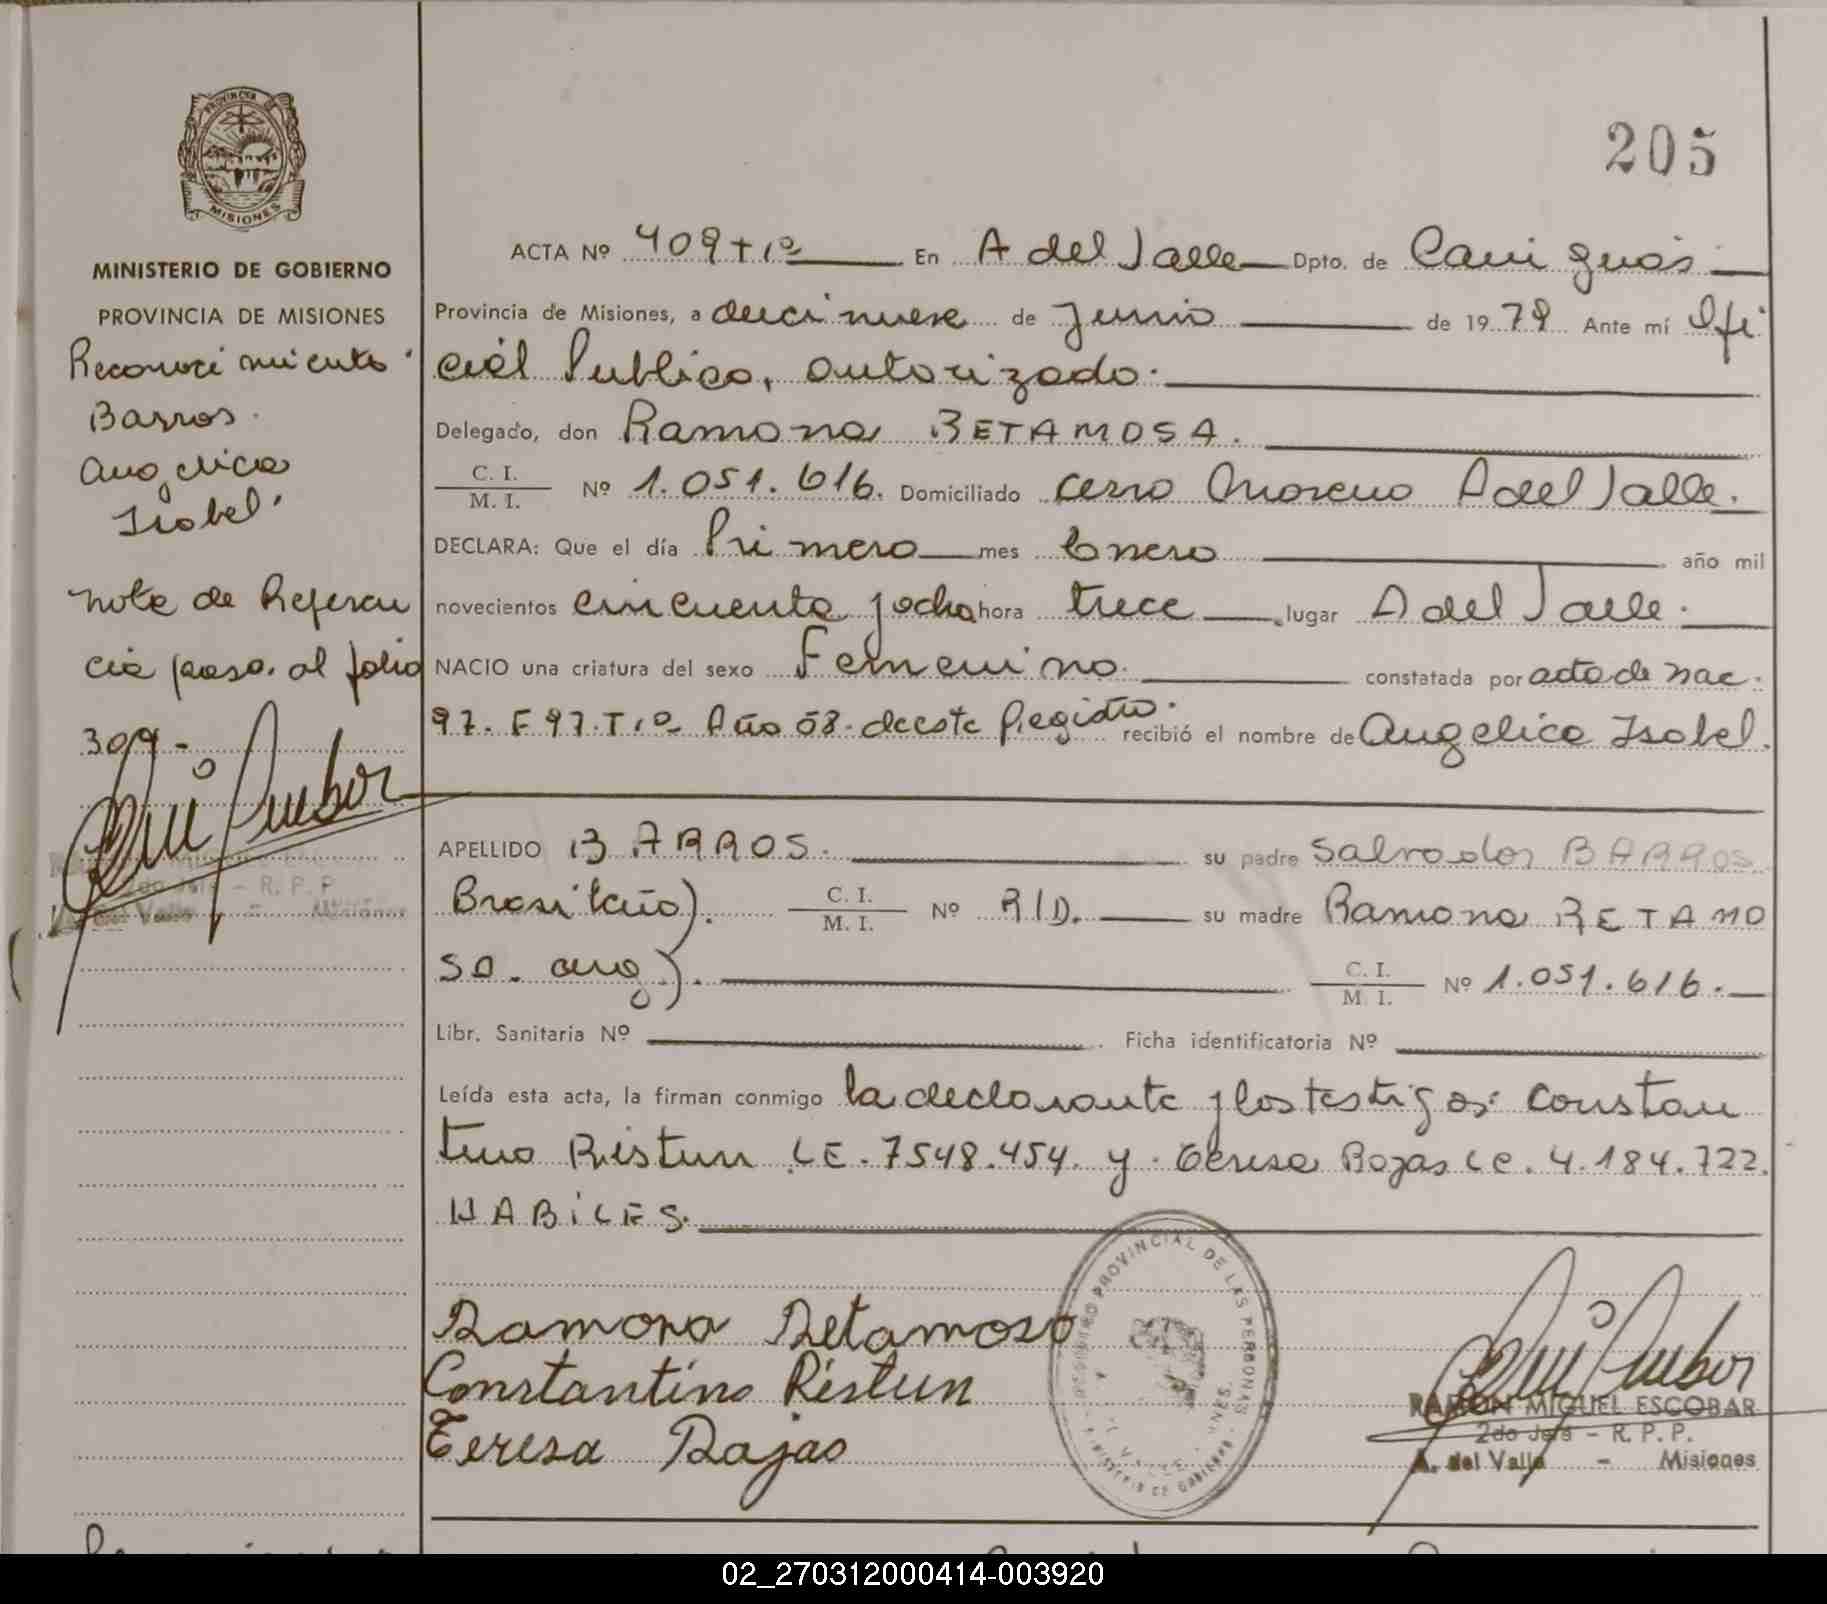 205
PROVINCIA DE
MISIONES
MINISTERIO DE GOBIERNO
PROVINCIA DE MISIONES
Reconocimiento
Barros
Angelica
Isabel
nota de Referen
cia pasa al folio
309-
2do Jefe - R. P. P.
A. del Valle - Misiones
ACTA Nº 409 T 1º En A del Valle Dpto. de Cainguás
Provincia de Misiones, a diecinueve de Junio de 1979 Ante mí Ofi
cial Publico, autorizado.
Delegado, don Ramona RETAMOSA.
C. I.
M. I.
Nº 1.051.616. Domiciliado cerro Moreno A del Valle.
DECLARA: Que el día Primero mes Enero año mil
novecientos cincuenta y ocho hora trece lugar A del Valle.
NACIO una criatura del sexo Femenino. constatada por acta de nac.
97. F 97. T 1º Año 58. de este Registro. recibió el nombre de Angelica Isabel.
APELLIDO BARROS. su padre Salvador BARROS
Brasileño). C. I.
M. I.
Nº R/D. su madre Ramona RETAMO
SA. arg). C. I.
M. I.
Nº 1.051.616.
Libr. Sanitaria Nº Ficha identificatoria Nº
Leída esta acta, la firman conmigo la declarante y los testigos: Constan
tino Ristun LE. 7548.454. y Teresa Rojas LC. 4.184.722.
HABILES.
Ramona Retamoso
Constantino Ristun
Teresa Rojas
REGISTRO PROVINCIAL DE LAS PERSONAS
MINISTERIO DE GOBIERNO
RAMON MIGUEL ESCOBAR
2do Jefe - R. P. P.
A. del Valle - Misiones
02_270312000414-003920